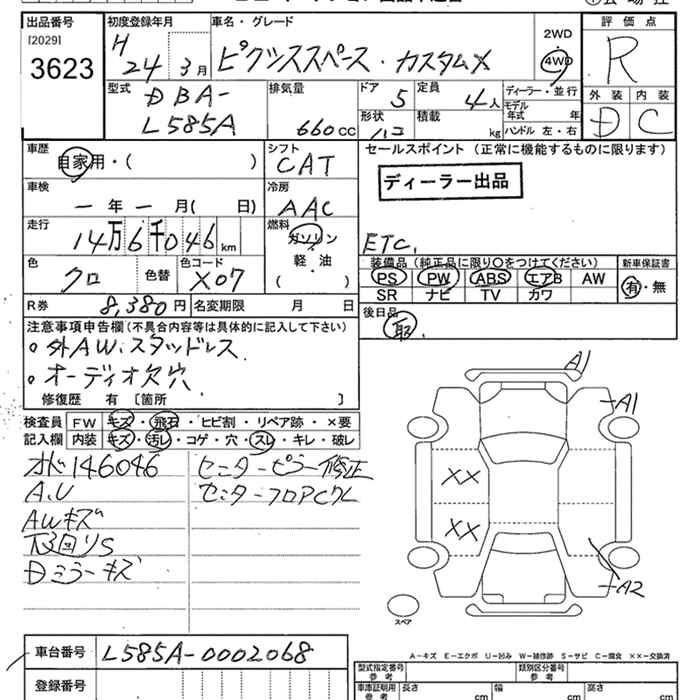 出品番号
[2029]
3623
初度登録年月
H
24 3月
車名・グレード
ピクシススペース・カスタムX
2WD
4WD
評価点
R
外装 内装
D C
型式
DBA-
L585A
排気量
660cc
ドア 5
形状
ハコ
定員 4人
積載 kg
ディーラー・並行
モデル
年式 年
ハンドル 左・右
車歴
自家用・( )
シフト
CAT
セールスポイント (正常に機能するものに限ります)
ディーラー出品
ETC.
車検
ー年ー月( 日)
冷房
AAC
走行
14万6千046km
燃料
ガソリン
軽・油
( )
色
クロ
色替
色コード
X07
装備品 (純正品に限り○をつけてください)
PS PW ABS エアB AW
SR ナビ TV カワ
新車保証書
有・無
R券 8,380円
名変期限 月 日
後日品
取.
注意事項申告欄(不具合内容等は具体的に記入して下さい)
○外AW、スタッドレス
○オーディオ欠穴
修復歴 有 [箇所 ]
検査員
記入欄
FW キズ・飛石・ヒビ割・リペア跡・×要
内装 キズ・汚レ・コゲ・穴・スレ・キレ・破レ
オド146046
A.U
AWキズ
下回リS
Dミラーキズ
センターピラー修正
センターフロアPクレ
A1
A1
XX
XX
A2
スペア
A-キズ E-エクボ U-凹み W-補修跡 S-サビ C-腐食 ××-交換済
車台番号 L585A-0002068
登録番号
型式指定番号
参考
類別区分番号
参考
車庫証明用
参考
長さ cm
幅 cm
高さ cm